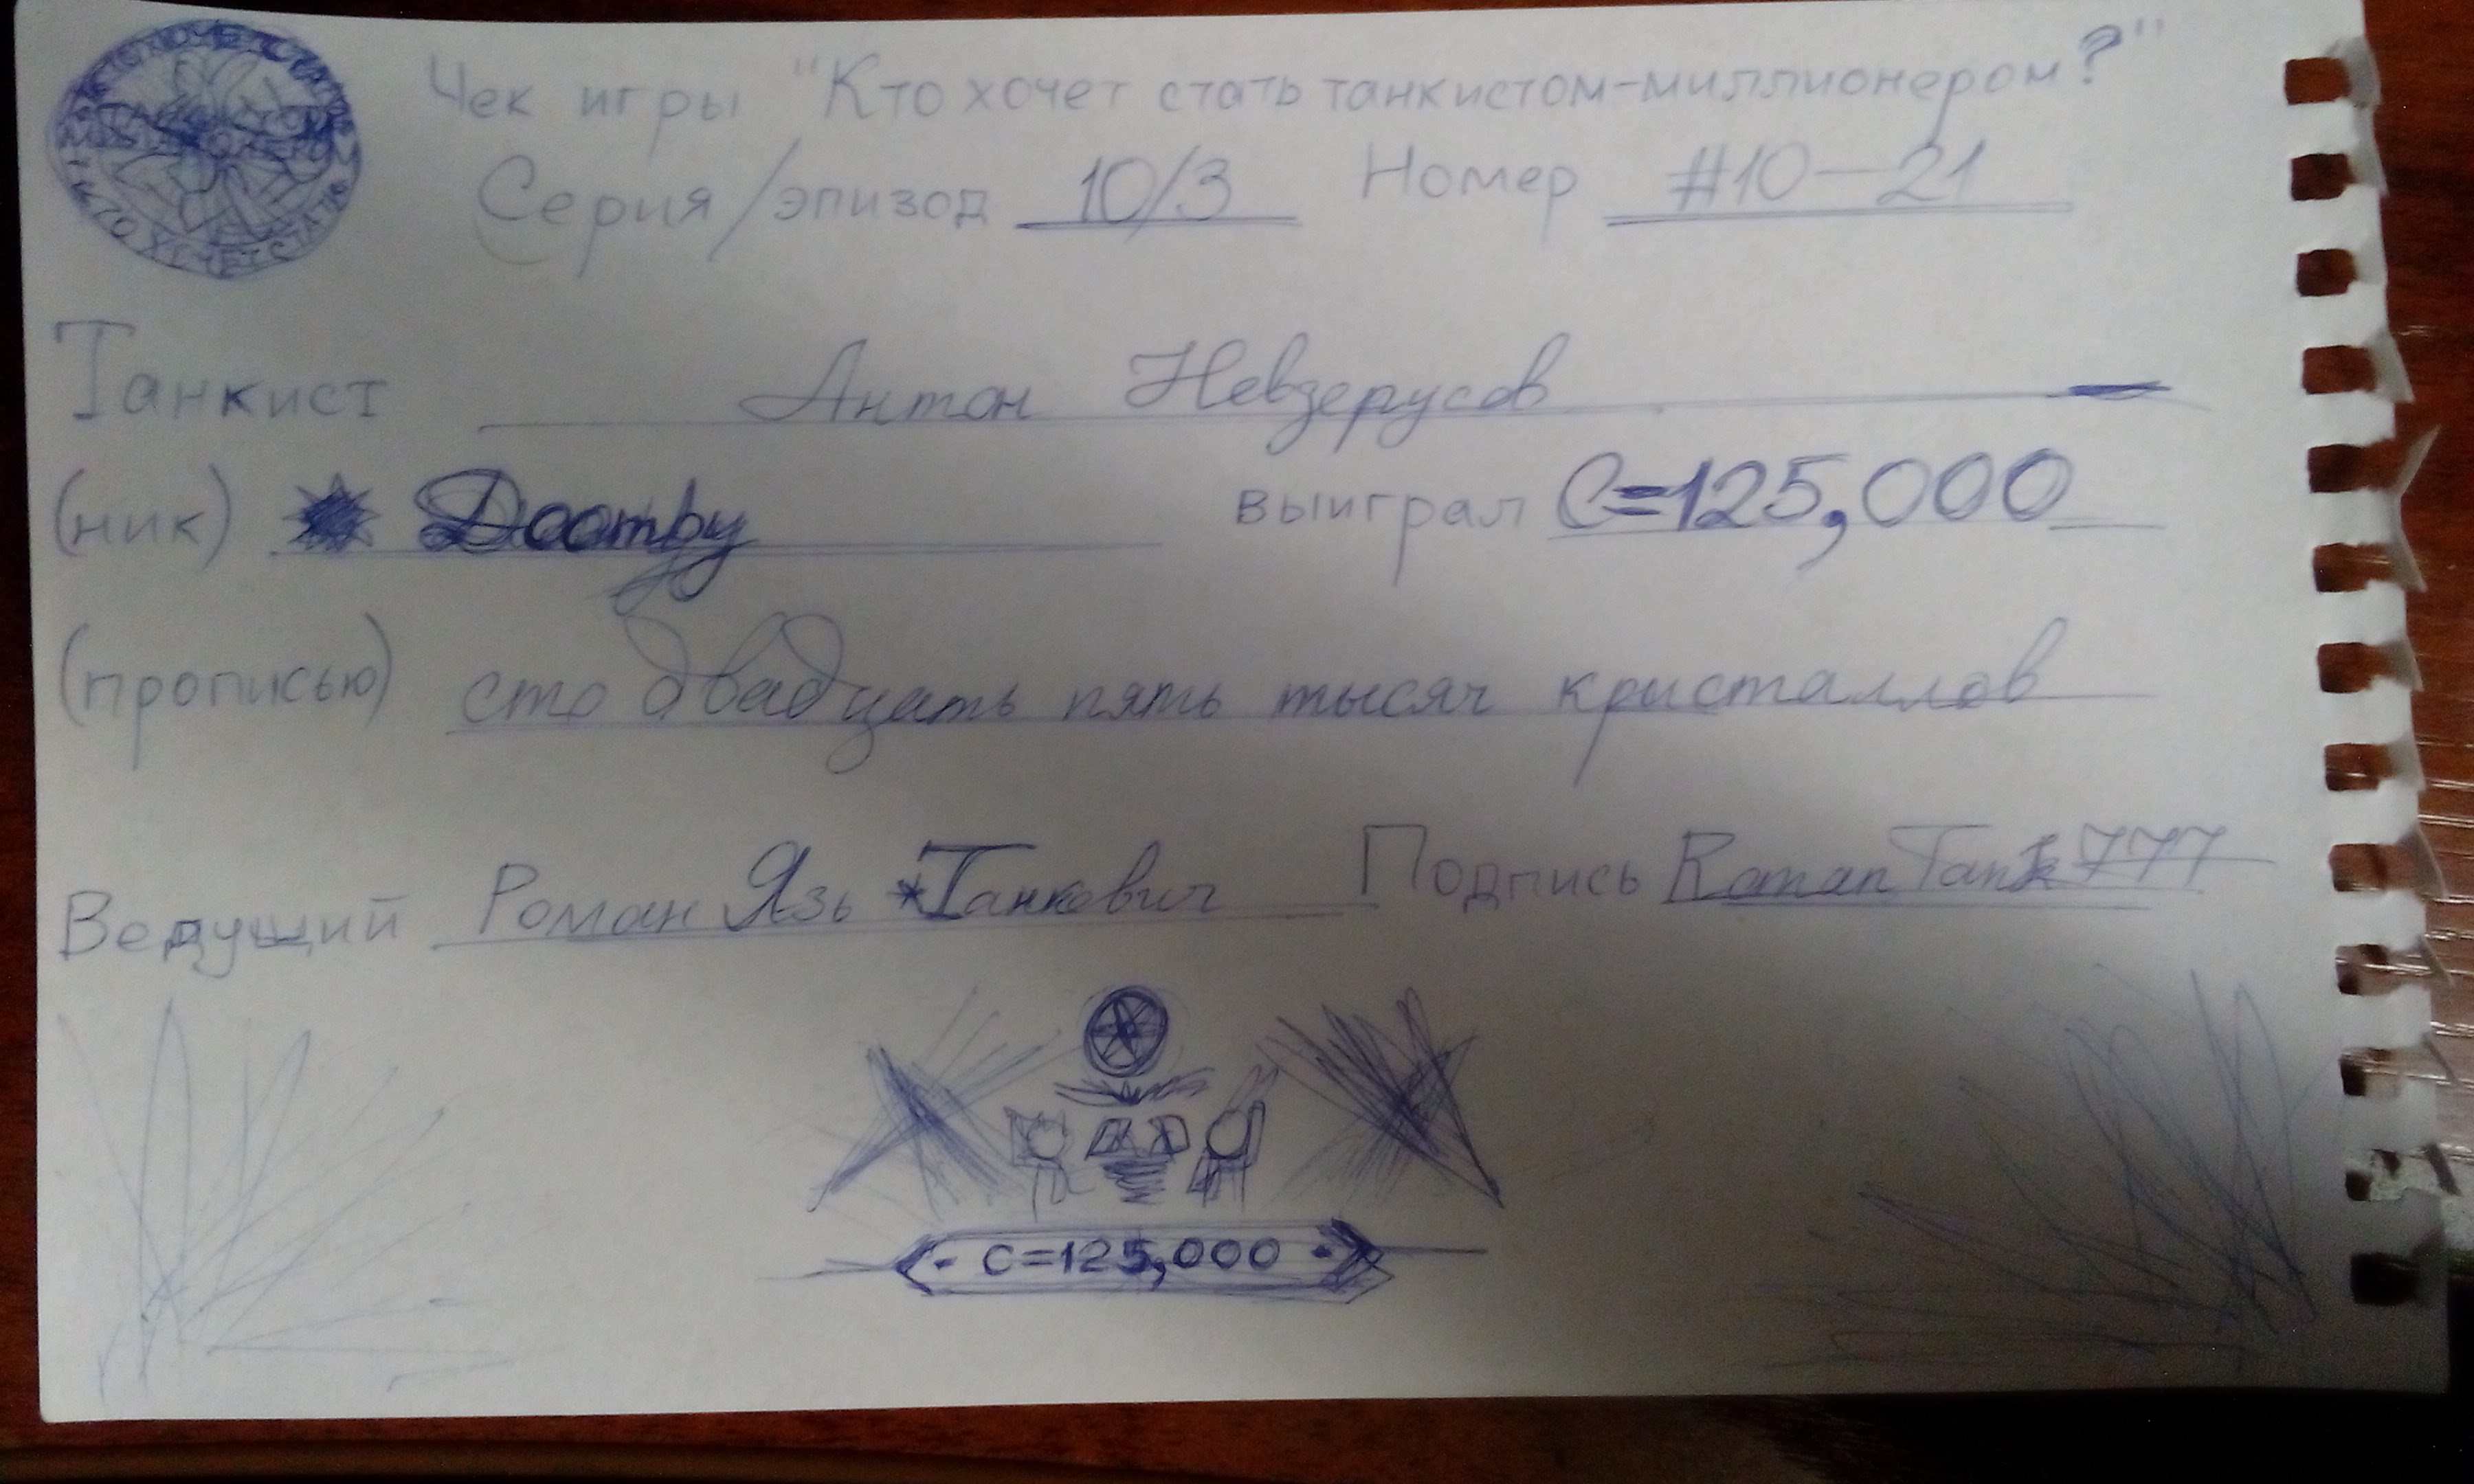 Чек игры "Кто хочет стать танкистом-миллионером?"
Серия/эпизод 10/3 Номер #10—21
Танкист Антон Невзерусов
(ник) Doomby выиграл C=125,000
(прописью) сто двадцать пять тысяч кристаллов
Ведущий Роман Язь *Танкович Подпись RomanTank777
- C=125,000 -